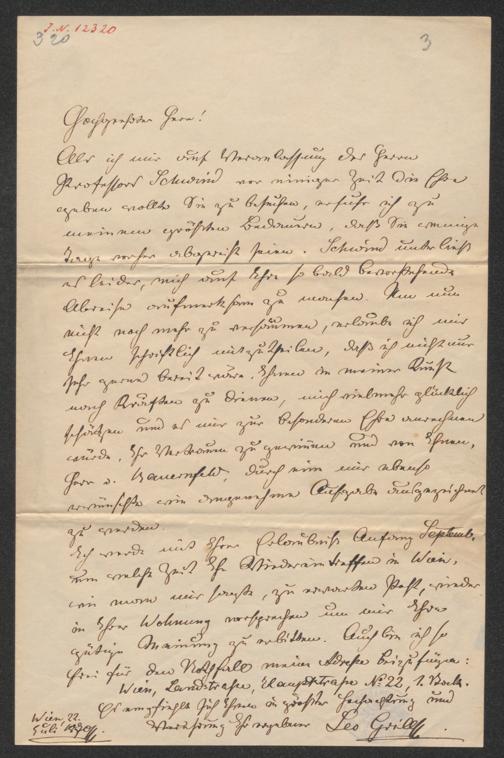 I.N. 12320
320
3
Hochgeehrter Herr!
Als ich mir auf Veranlassung des Herrn
Professors Schwind vor einiger Zeit die Ehre
geben wollte Sie zu besuchen, erfuhr ich zu
meinem größten Bedauern, daß Sie wenige
Tage vorher abgereist seien. Schwind unterließ
es leider, mich auf Ihre so bald bevorstehende
Abreise aufmerksam zu machen. Um nun
nicht noch mehr zu versäumen, erlaube ich mir
Ihnen schriftlich mitzutheilen, daß ich nicht nur
sehr gerne bereit wäre Ihnen in meiner Kunst
nach Kräften zu dienen, mich vielmehr glücklich
schätzen und es mir zur besonderen Ehre anrechnen
würde, Ihr Vertrauen zu gewinnen und von Ihnen,
Herr v. Bauernfeld, durch eine mir ebenso
erwünschte wie angenehme Aufgabe ausgezeichnet
zu werden.
Ich werde mit Ihrer Erlaubniß Anfang Septemb.
um welche Zeit Ihr Wiedereintreffen in Wien,
wie man mir sagte, zu erwarten steht, wieder
in Ihrer Wohnung vorsprechen um mir Ihre
gütige Meinung zu erbitten. Auch bin ich so
frei für den Nothfall meine Adresse beizufügen:
Wien, Landstraße, Hauptstraße No 22, 1. Stock.
Es empfiehlt sich Ihnen in größter Hochachtung und
Verehrung Ihr ergebener Leo Grill
Wien, 22.
Juli